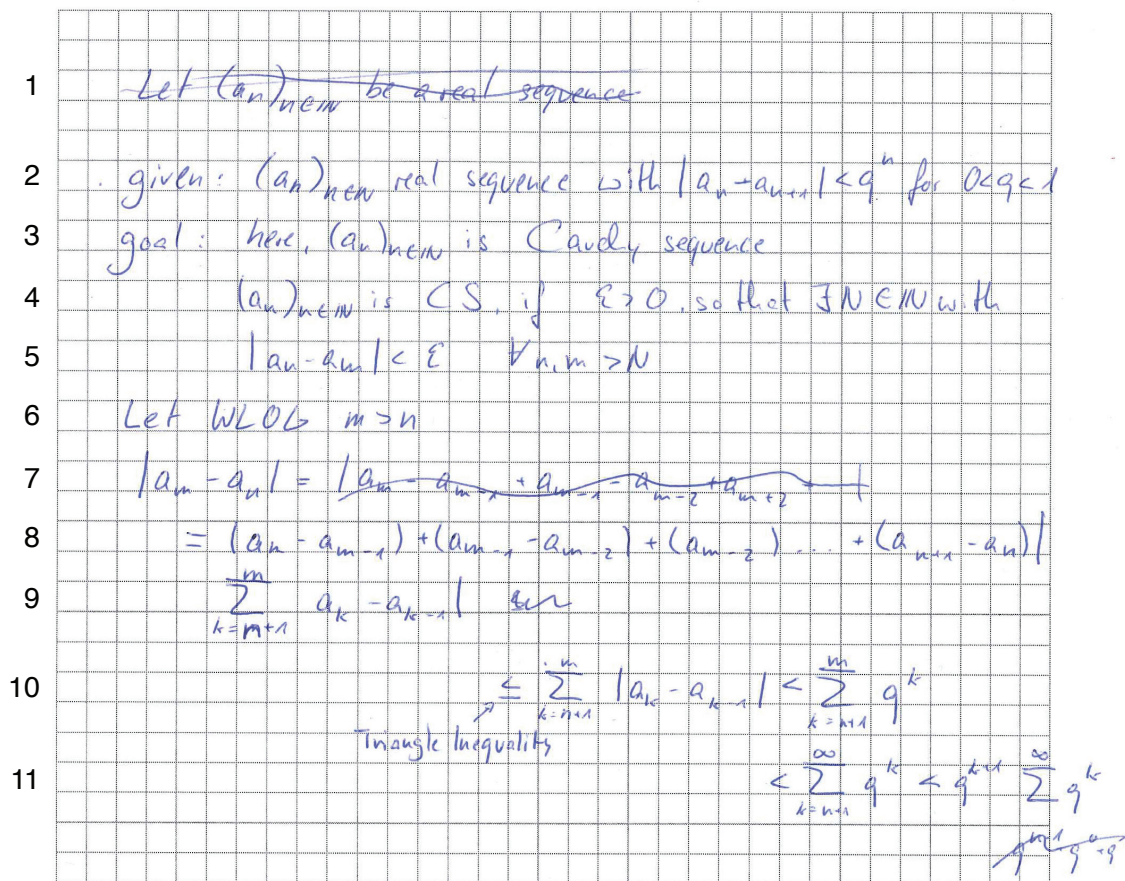 1 Let (aₙ)ₙ∈ℕ be a real sequence
2 given: (aₙ)ₙ∈ℕ real sequence with |aₙ - aₙ₊₁| < qⁿ for 0<q<1
3 goal: here, (aₙ)ₙ∈ℕ is Cauchy sequence
4 (aₙ)ₙ∈ℕ is CS, if ε>0, so that ∃N∈ℕ with
5 |aₙ - aₘ| < ε ∀n,m >N
6 Let WLOG m>n
7 |aₘ - aₙ| = |aₘ - aₘ₋₁ + aₘ₋₁ - aₘ₋₂ + aₘ₊₂ - |
8 = (aₙ - aₘ₋₁) + (aₘ₋₁ - aₘ₋₂) + (aₘ₋₂) ... + (aₙ₊₁ - aₙ)|
9 ∑_{k=m+1}^{m} aₖ - aₖ₋₁|
10 ≤ ∑_{k=n+1}^{m} |aₖ - aₖ₋₁| < ∑_{k=n+1}^{m} q^k
Triangle Inequality
11 < ∑_{k=n+1}^{∞} q^k < q^{k+1} ∑^{∞} q^k